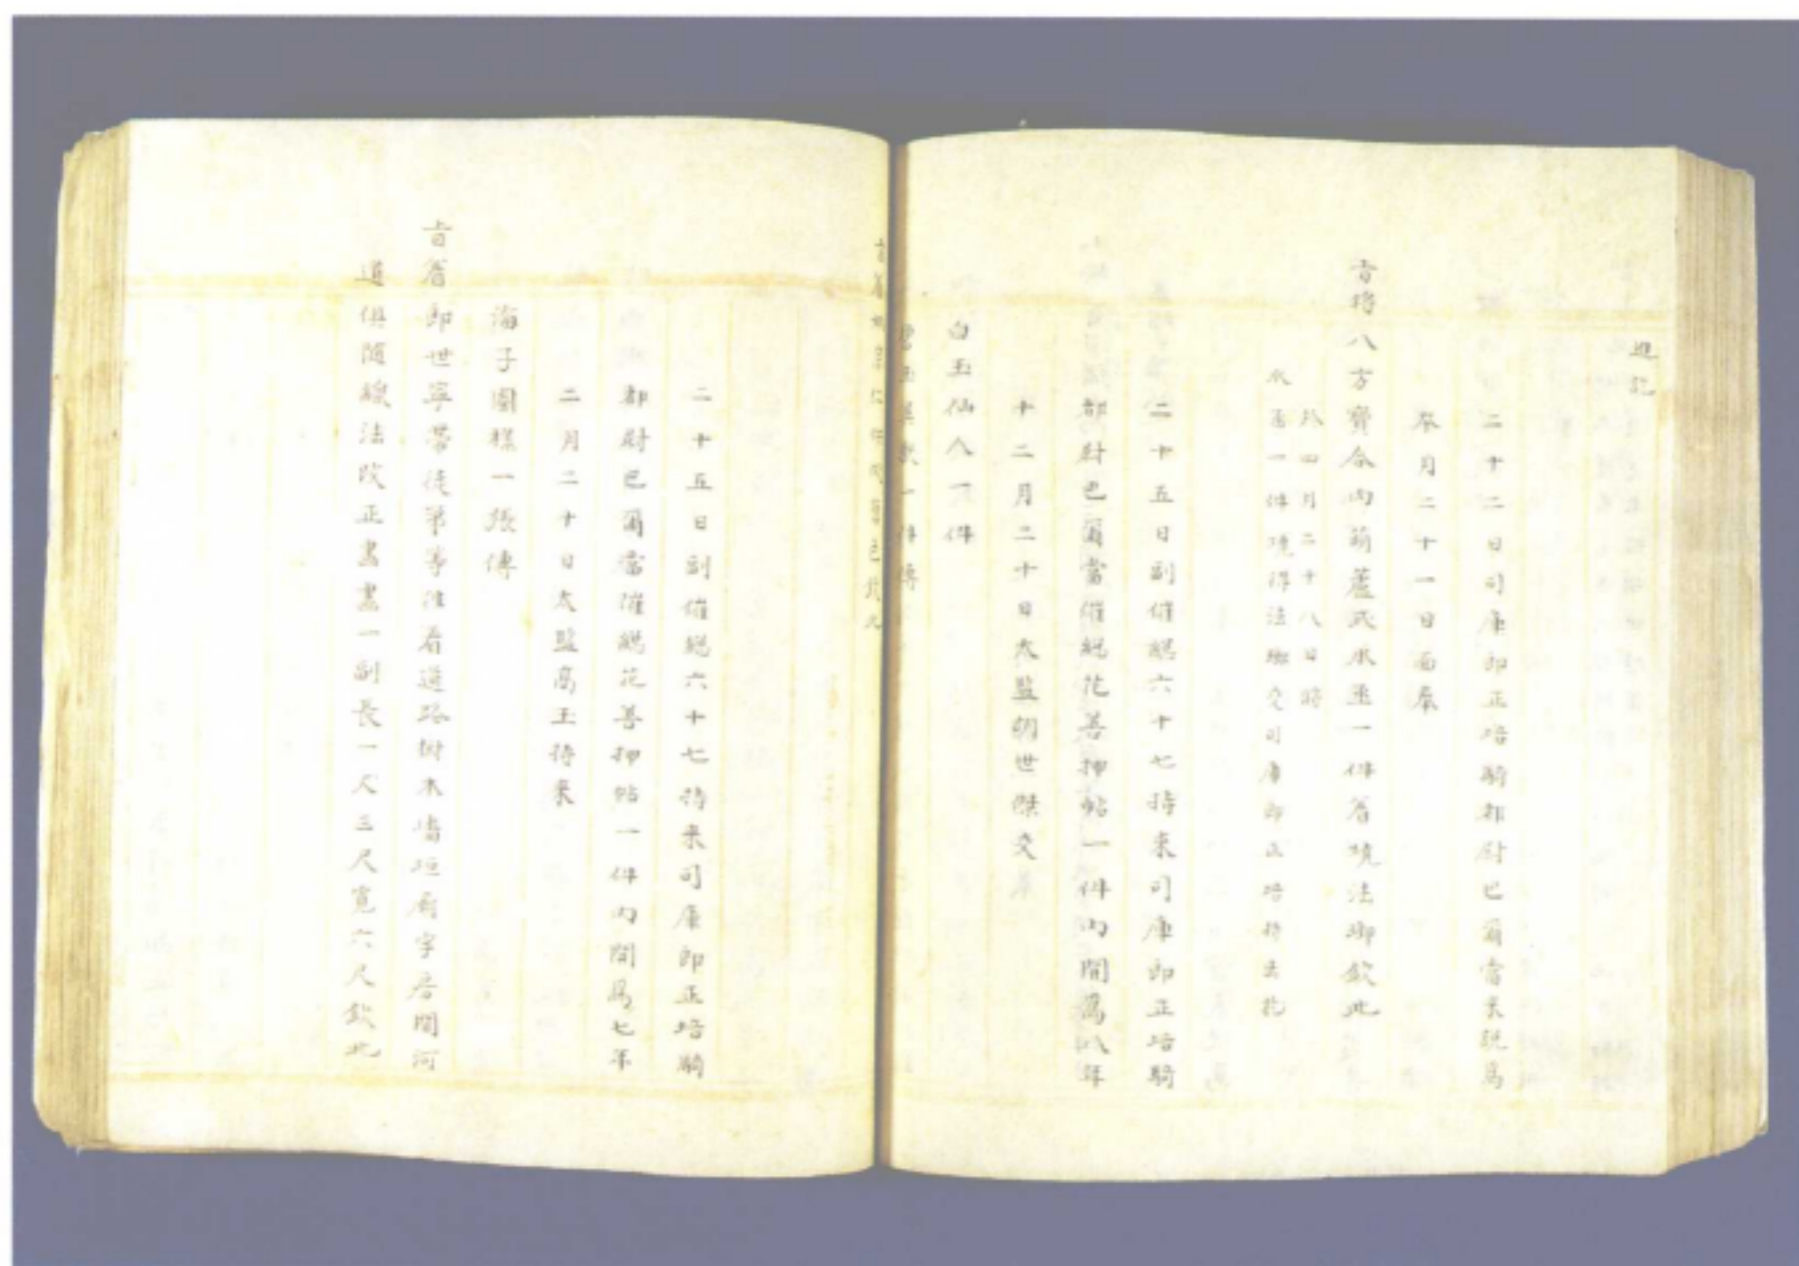 進記
二十二日司庫郎正培騎都尉巴爾當來説爲
本月二十一日面奉
旨將八方寶盒内葫蘆式水盂一件着燒法瑯欽此
於四月二十八日將
水盂一件燒得法瑯交司庫郎正培持去訖
二十五日副催總六十七持來司庫郎正培騎
都尉巴爾當催總花善押帖一件内開爲八年
十二月二十日太監胡世傑交
白玉仙人一件
一件傳
二十五日副催總六十七持來司庫郎正培騎
都尉巴爾當催總花善押帖一件内開爲七年
二月二十日太監高玉持來
海子圖樣一張傳
旨着郎世寧帶徒弟等往看道路樹木墻垣廟宇房間河
道俱隨線法改正畫畫一副長一丈三尺寬六尺欽此